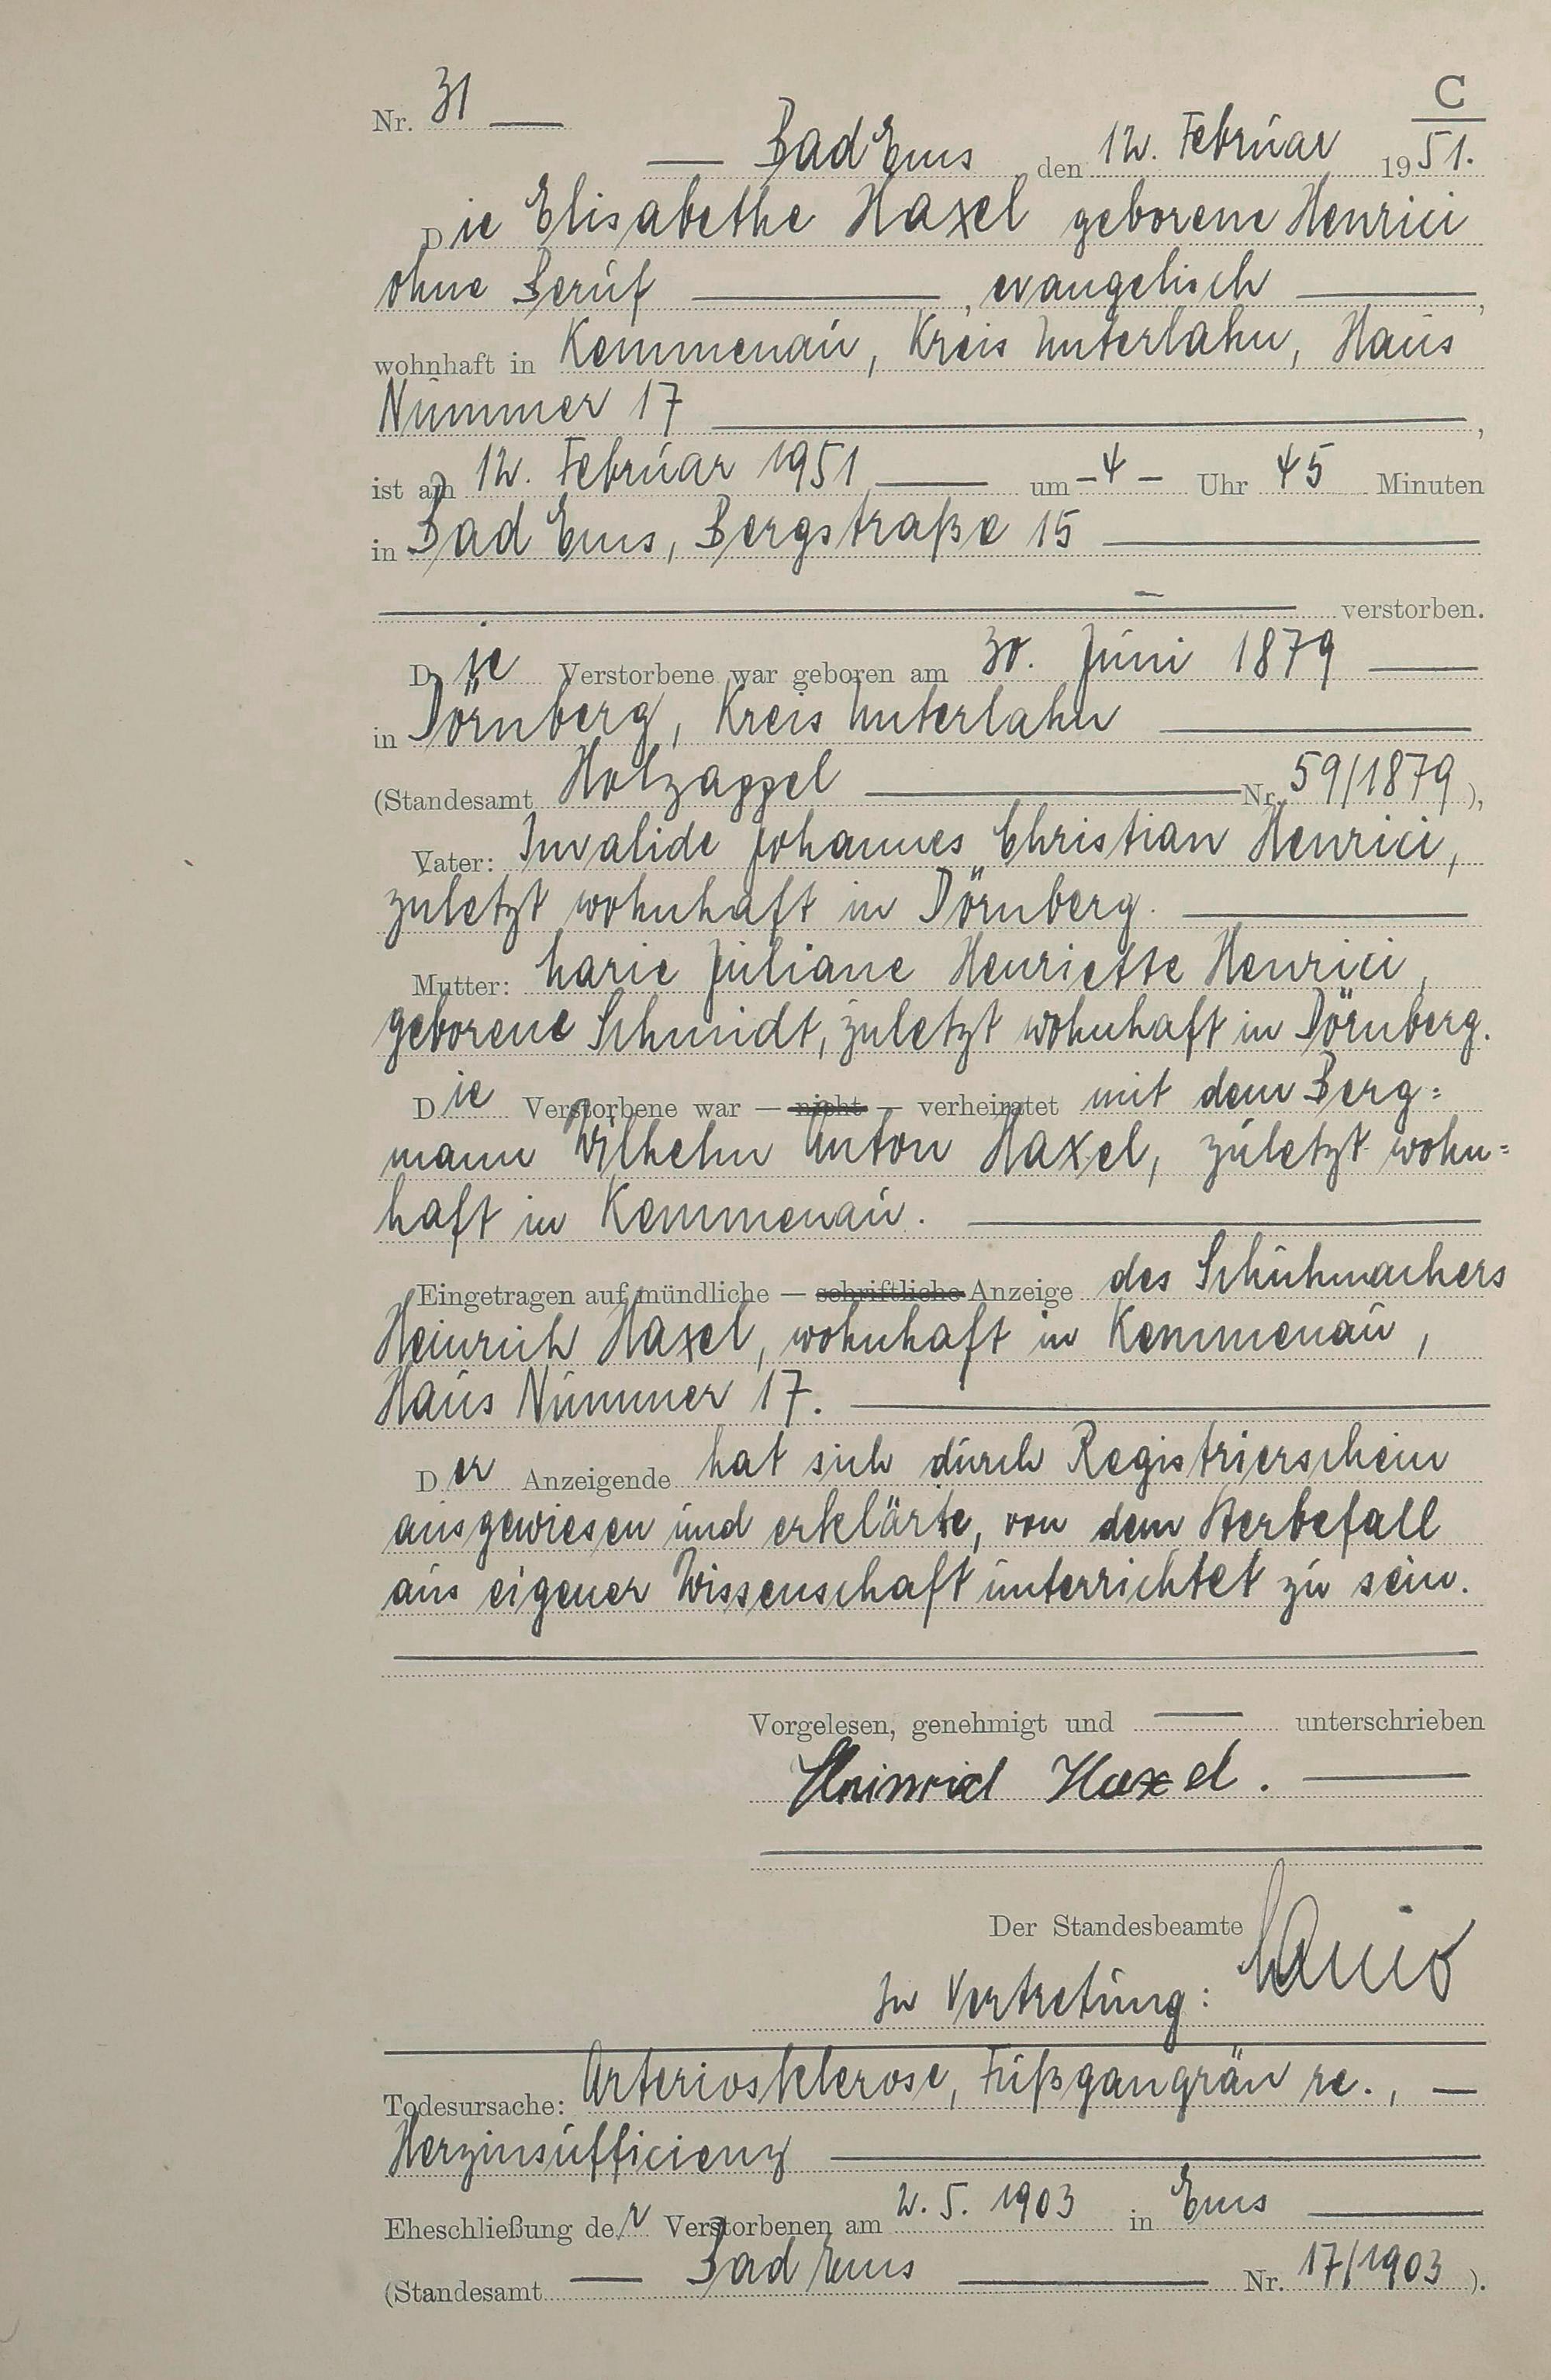 C
Nr. 31
Bad Ems den 12. Februar 1951.
Die Elisabethe Haxel geborene Henrici
ohne Beruf, evangelisch,
wohnhaft in Kemmenau, Kreis Unterlahn, Haus
Nummer 17,
ist am 12. Februar 1951 um - 4 - Uhr 45 Minuten
in Bad Ems, Bergstraße 15
verstorben.
Die Verstorbene war geboren am 30. Juni 1879
in Dörnberg, Kreis Unterlahn
(Standesamt Holzappel Nr. 59/1879),
Vater: Invalide Johannes Christian Henrici,
zuletzt wohnhaft in Dörnberg.
Mutter: Marie Juliane Henriette Henrici,
geborene Schmidt, zuletzt wohnhaft in Dörnberg.
Die Verstorbene war — nicht — verheiratet mit dem Berg=
mann Wilhelm Anton Haxel, zuletzt wohn=
haft in Kemmenau.
Eingetragen auf mündliche — schriftliche Anzeige des Schuhmachers
Heinrich Haxel, wohnhaft in Kemmenau,
Haus Nummer 17.
Der Anzeigende hat sich durch Registrierschein
ausgewiesen und erklärte, von dem Sterbefall
aus eigener Wissenschaft unterrichtet zu sein.
Vorgelesen, genehmigt und unterschrieben
Heinrich Haxel.
Der Standesbeamte
In Vertretung:
Todesursache: Arteriosklerose, Fußgangrän re.,
Herzinsufficienz
Eheschließung der Verstorbenen am 2. 5. 1903 in Ems
(Standesamt Bad Ems Nr. 17/1903).